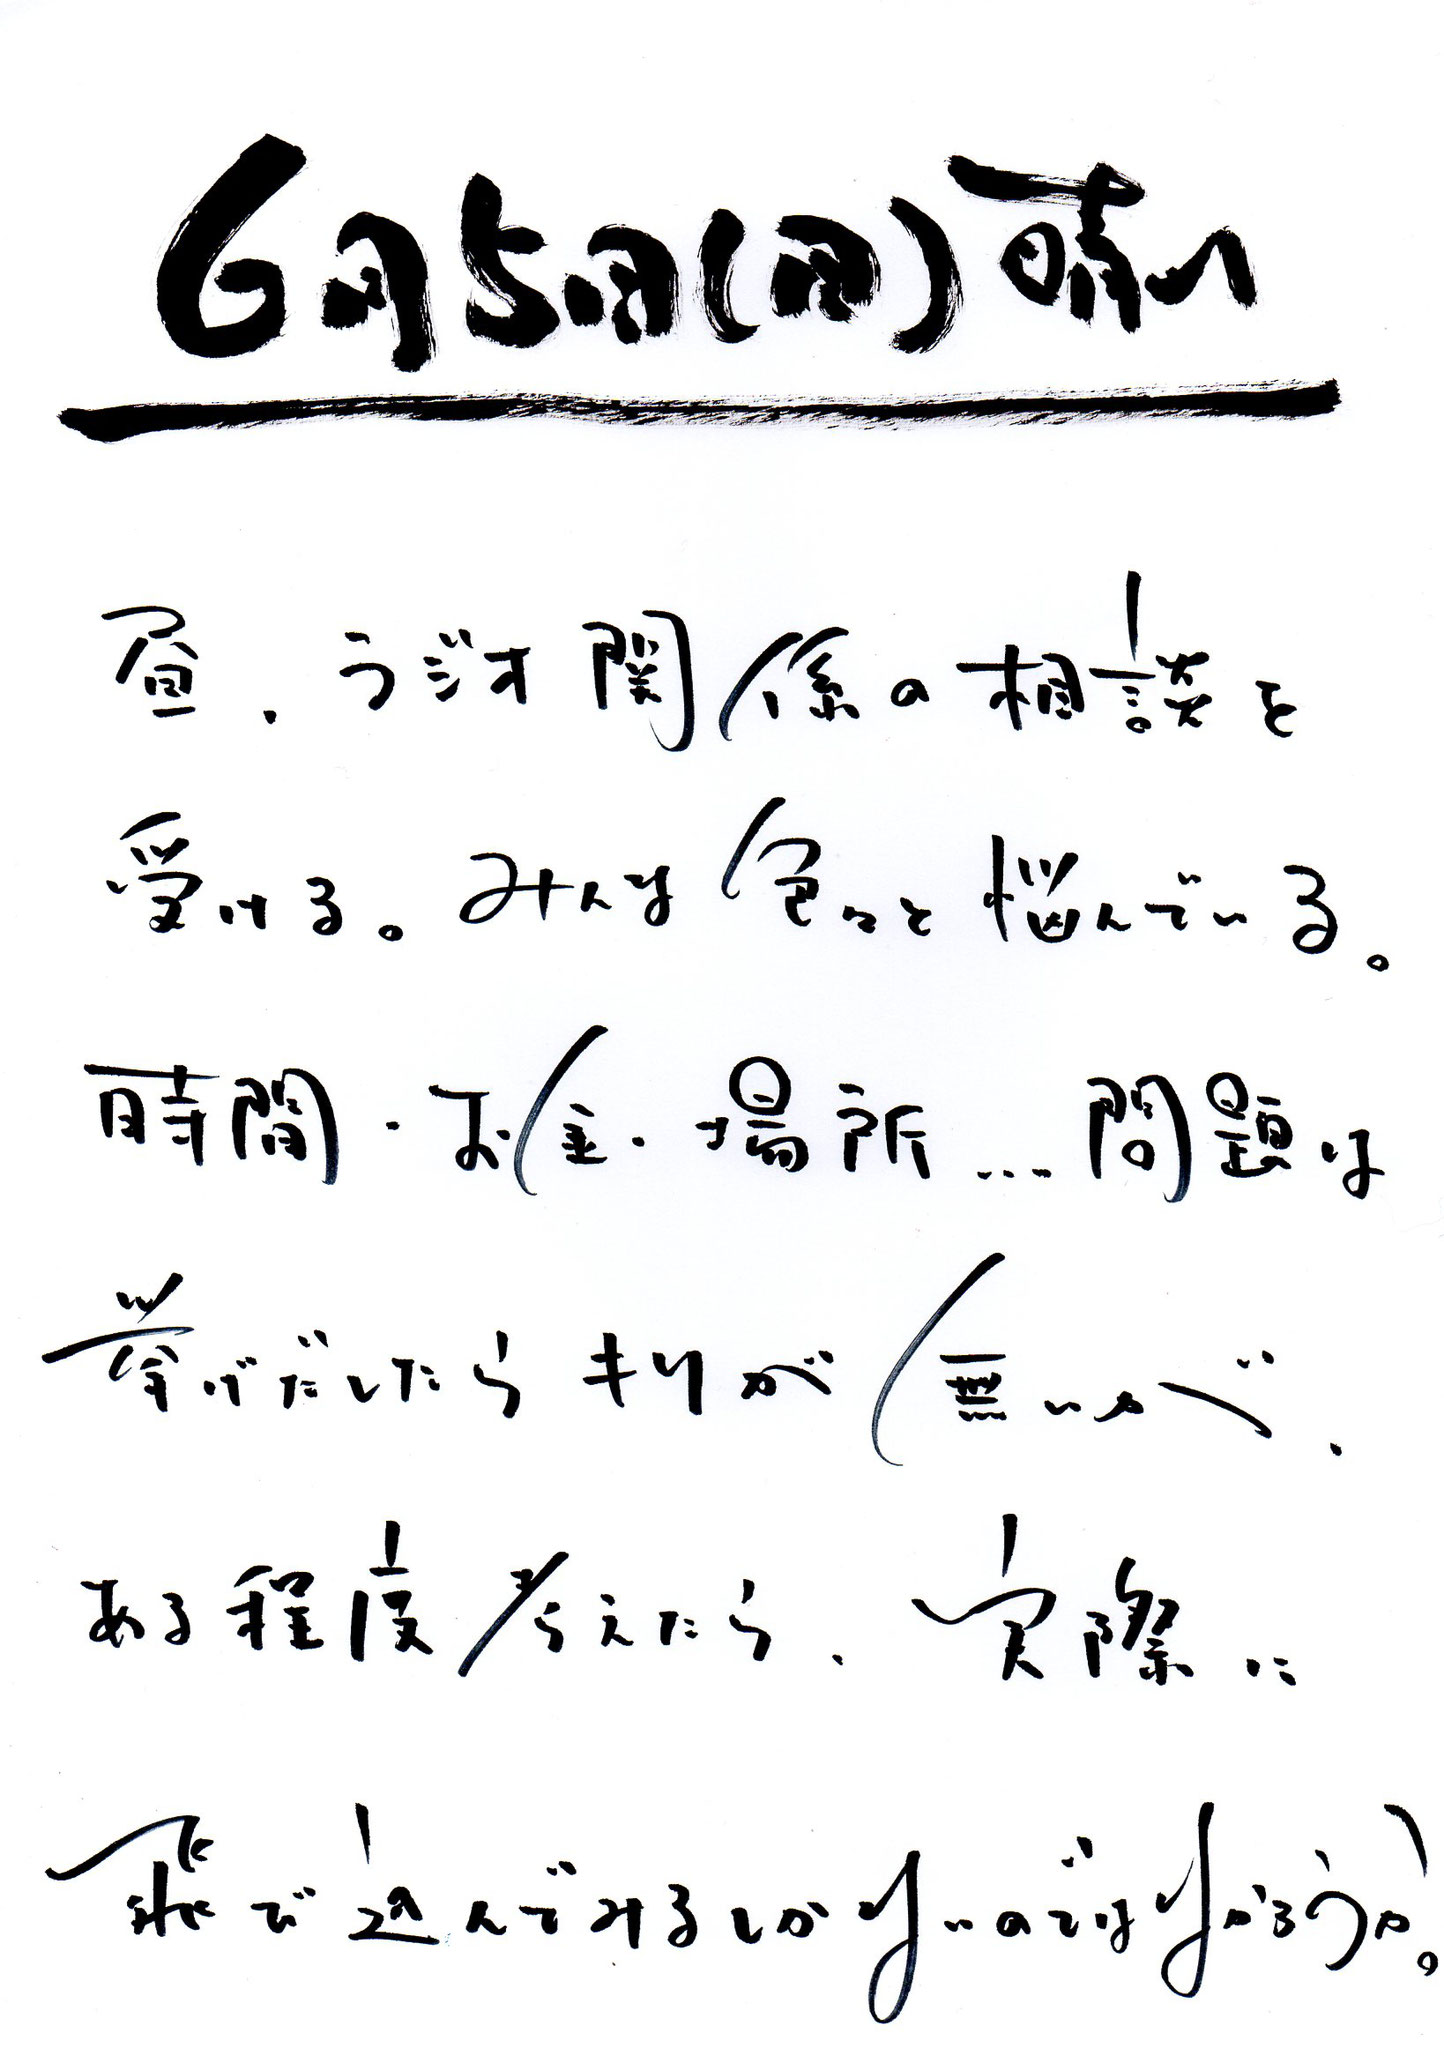 6月5日(月)晴れ
昼、ラジオ関係の相談を
受ける。みんな色々と悩んでいる。
時間・お金・場所…問題は
挙げだしたらキリが無いが、
ある程度考えたら、実際に
飛び込んでみるしかないのではなかろうか。